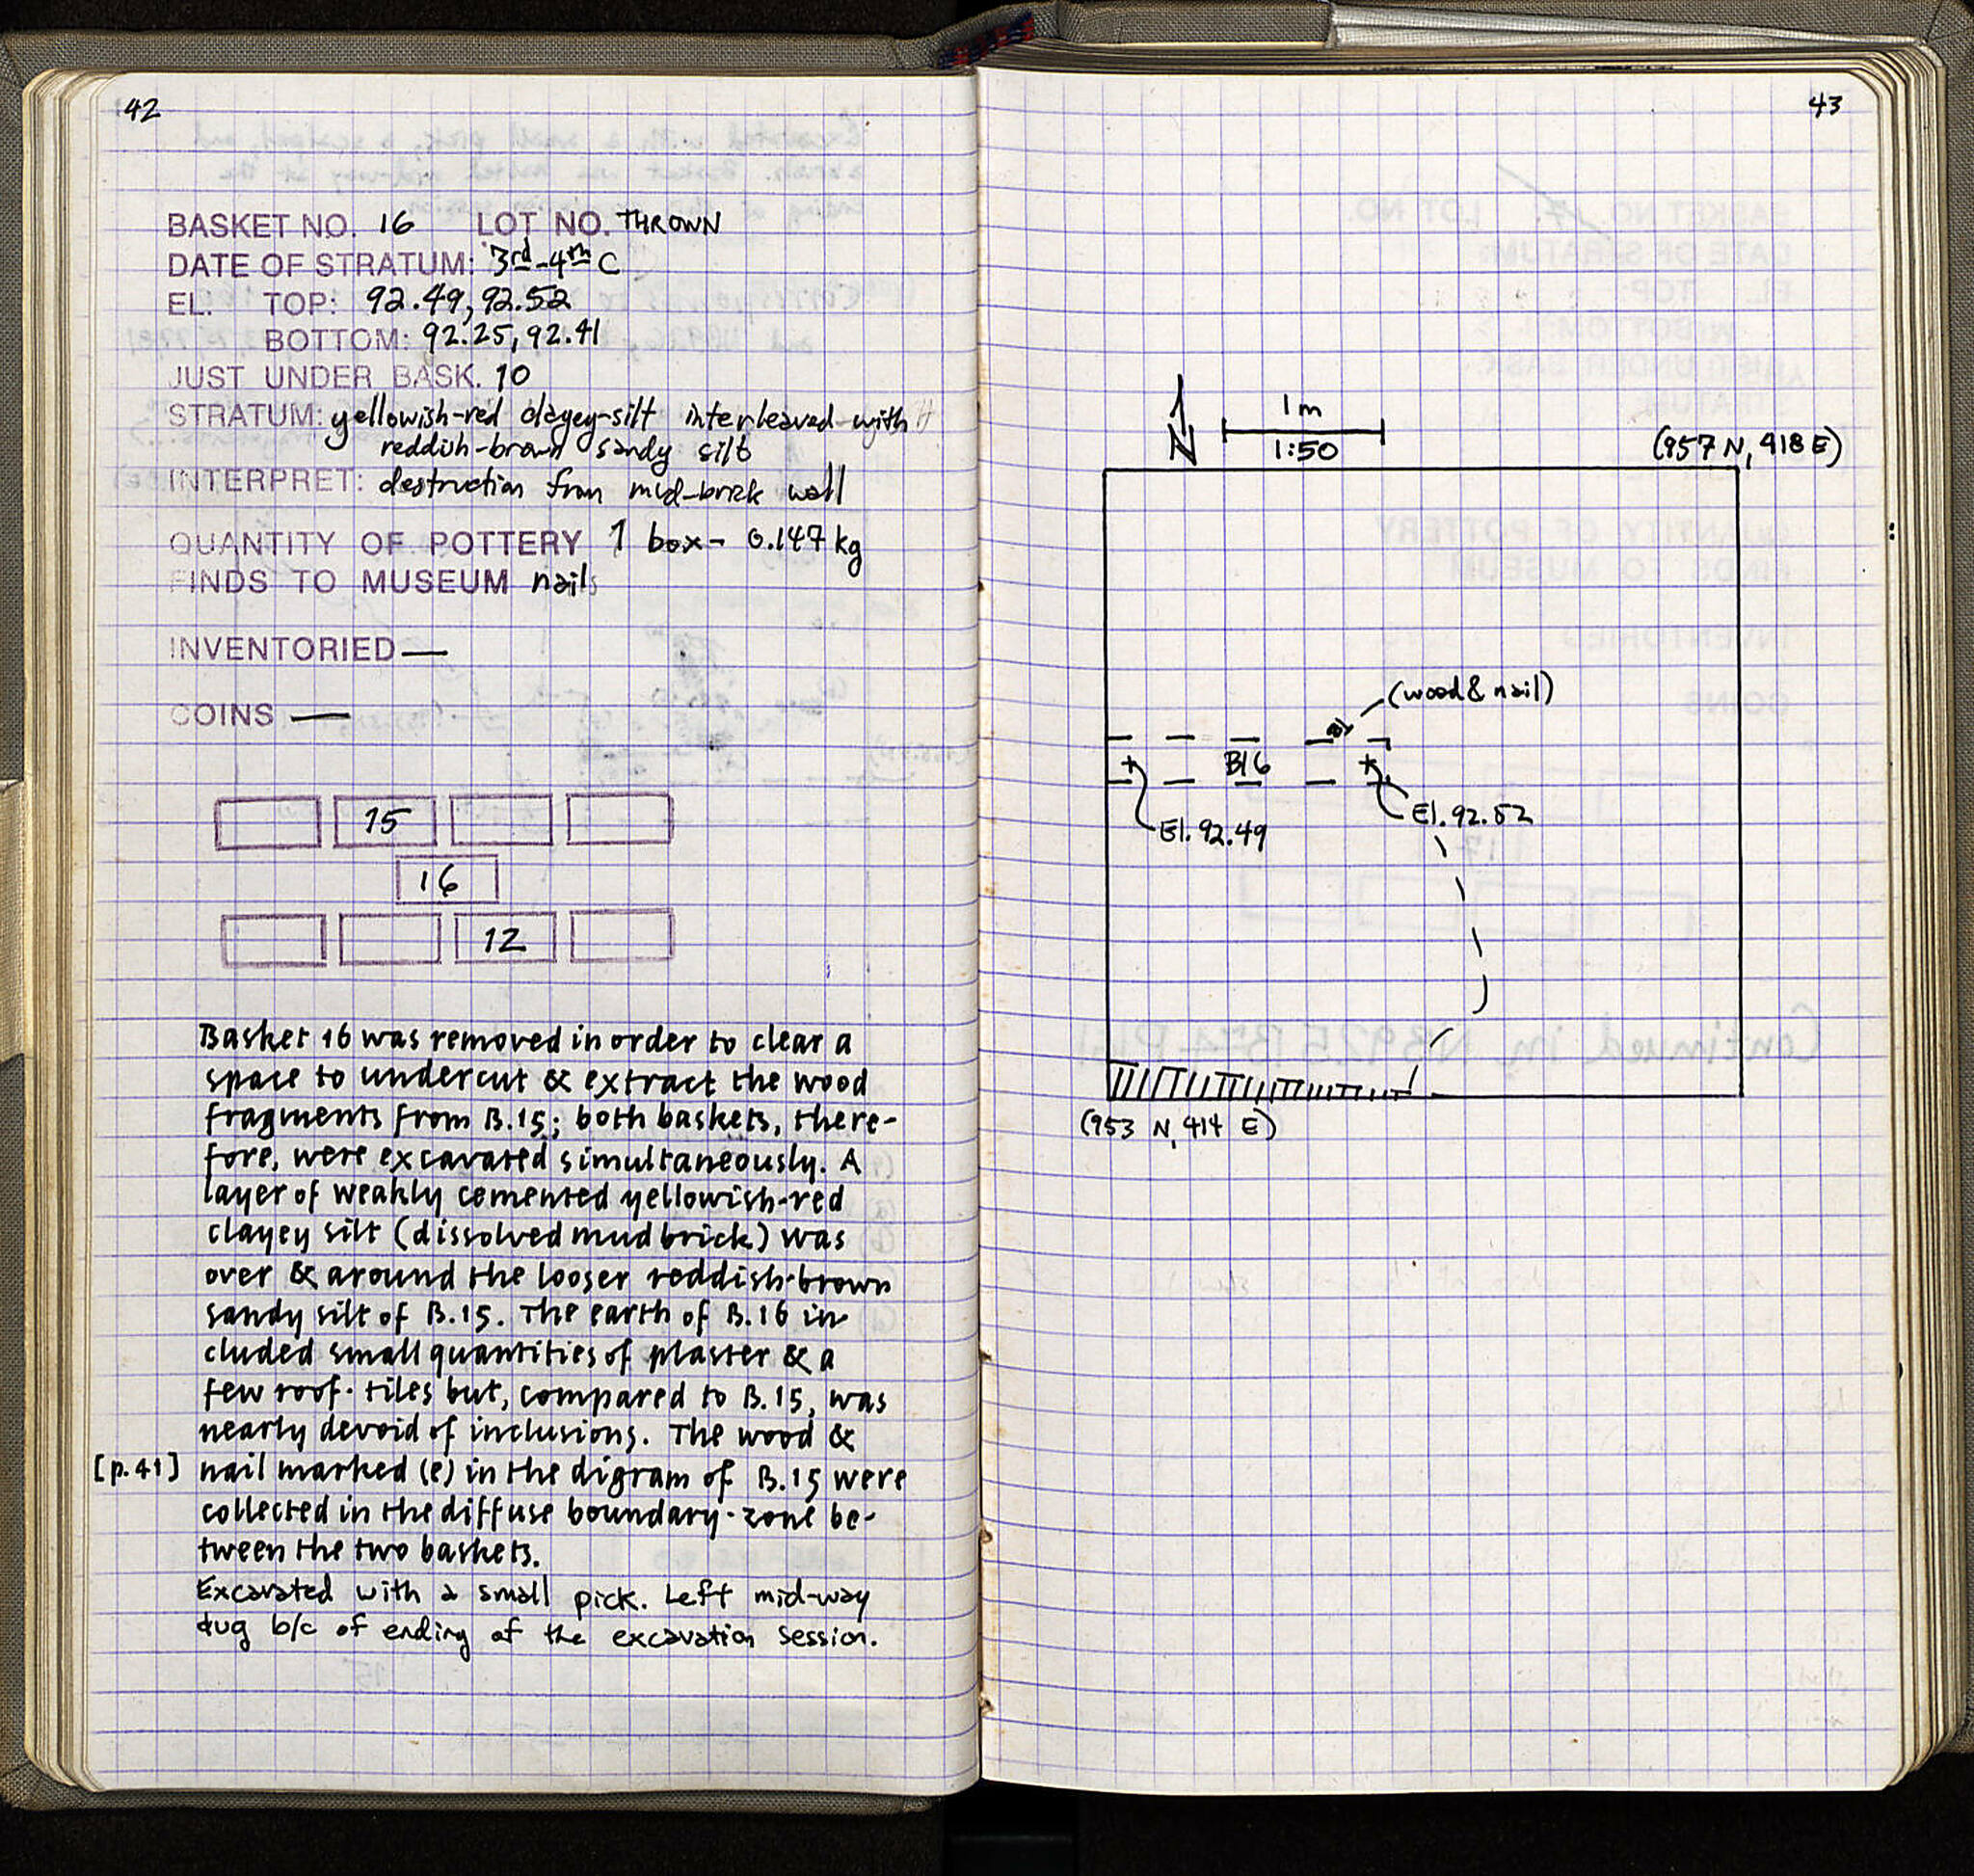 42
BASKET NO. 16 LOT NO. THROWN
DATE OF STRATUM: 3rd-4th C
EL. TOP: 92.49, 92.52
BOTTOM: 92.25, 92.41
JUST UNDER BASK. 10
STRATUM: yellowish-red clayey-silt interleaved with
reddish-brown sandy silt
INTERPRET: destruction from mud-brick wall
QUANTITY OF POTTERY 1 box - 0.147 kg
FINDS TO MUSEUM nails
INVENTORIED —
COINS —
15
16
12
Basket 16 was removed in order to clear a
space to undercut & extract the wood
fragments from B.15; both baskets, there-
fore, were excavated simultaneously. A
layer of weakly cemented yellowish-red
clayey silt (dissolved mudbrick) was
over & around the looser reddish-brown
sandy silt of B.15. The earth of B.16 in-
cluded small quantities of plaster & a
few roof-tiles but, compared to B.15, was
nearly devoid of inclusions. The wood &
[p.41] nail marked (e) in the digram of B.15 were
collected in the diffuse boundary-zone be-
tween the two baskets.
Excavated with a small pick. Left mid-way
dug b/c of ending of the excavation session.
43
N
1m
1:50
(957 N, 418 E)
(wood & nail)
B16
El. 92.52
El. 92.49
(953 N, 414 E)